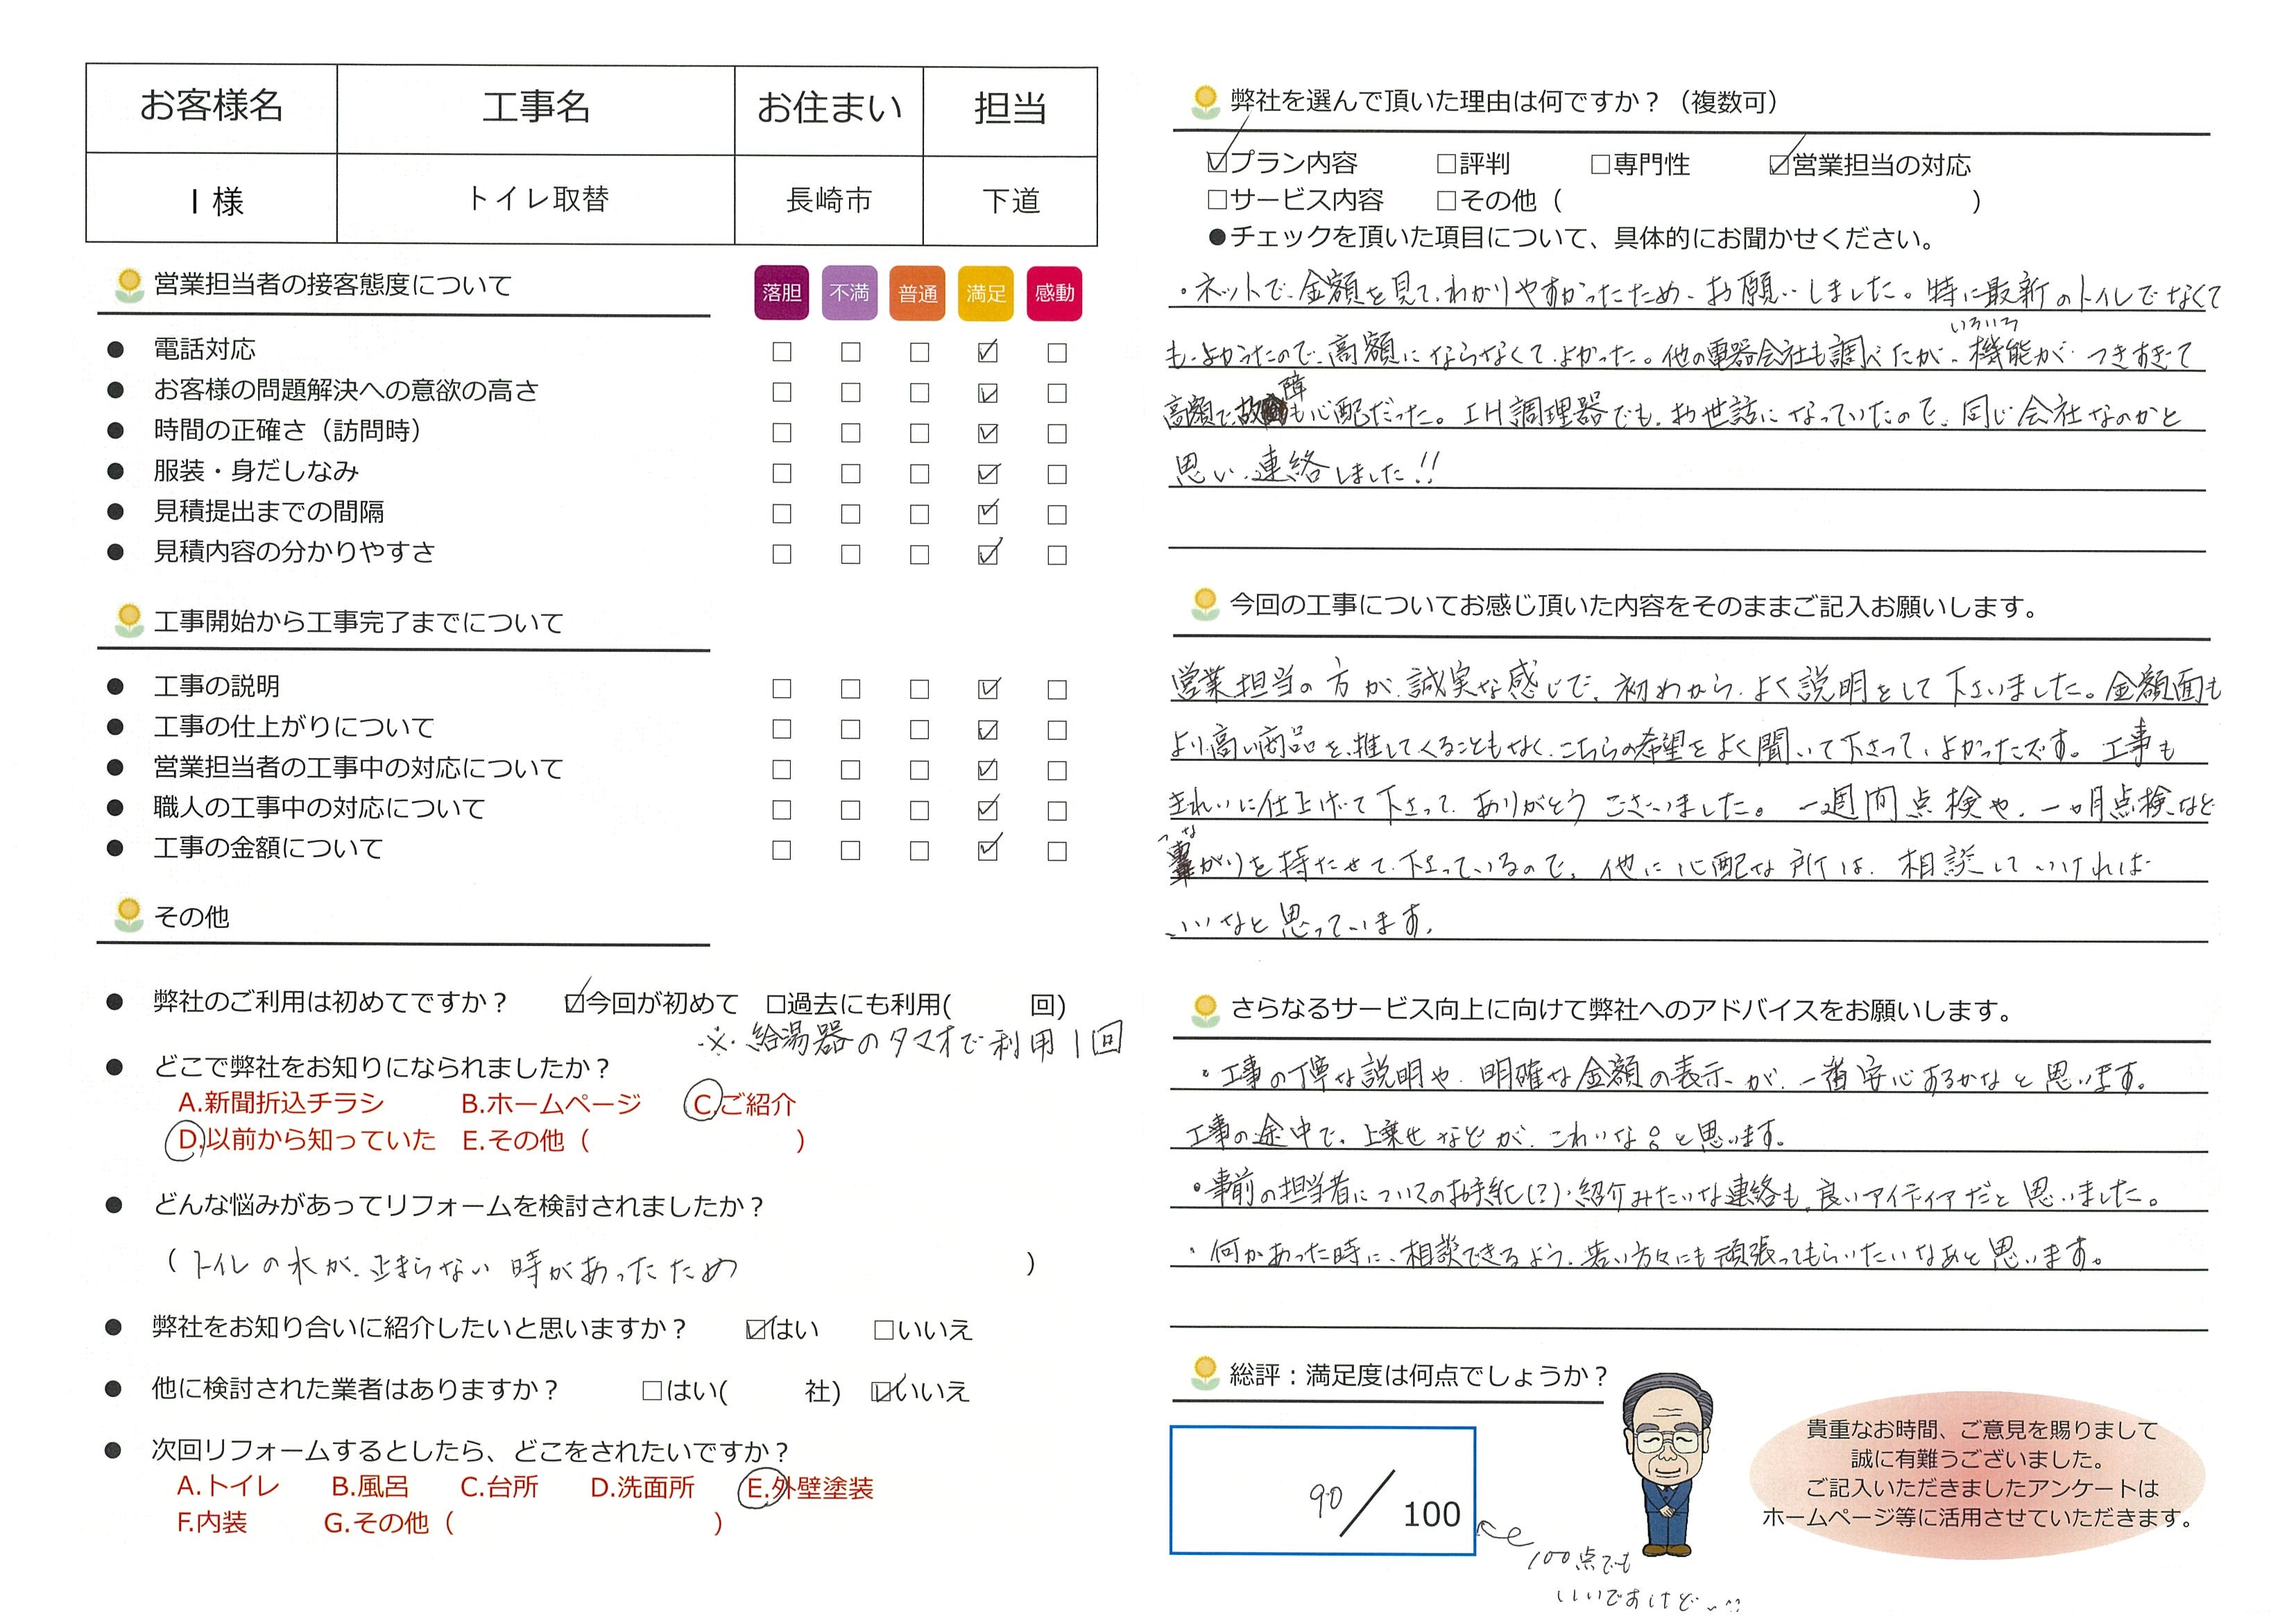 お客様名 工事名 お住まい 担当
I 様 トイレ取替 長崎市 下道
営業担当者の接客態度について 落胆 不満 普通 満足 感動
● 電話対応 □ □ □ ☑ □
● お客様の問題解決への意欲の高さ □ □ □ ☑ □
● 時間の正確さ（訪問時） □ □ □ ☑ □
● 服装・身だしなみ □ □ □ ☑ □
● 見積提出までの間隔 □ □ □ ☑ □
● 見積内容の分かりやすさ □ □ □ ☑ □
工事開始から工事完了までについて
● 工事の説明 □ □ □ ☑ □
● 工事の仕上がりについて □ □ □ ☑ □
● 営業担当者の工事中の対応について □ □ □ ☑ □
● 職人の工事中の対応について □ □ □ ☑ □
● 工事の金額について □ □ □ ☑ □
その他
● 弊社のご利用は初めてですか？ ☑今回が初めて □過去にも利用( 回)
※給湯器のタマオで利用1回
● どこで弊社をお知りになられましたか？
A.新聞折込チラシ B.ホームページ C.ご紹介
D.以前から知っていた E.その他（ ）
● どんな悩みがあってリフォームを検討されましたか？
（トイレの水が、止まらない時があったため ）
● 弊社をお知り合いに紹介したいと思いますか？ ☑はい □いいえ
● 他に検討された業者はありますか？ □はい( 社) ☑いいえ
● 次回リフォームするとしたら、どこをされたいですか？
A.トイレ B.風呂 C.台所 D.洗面所 E.外壁塗装
F.内装 G.その他（ ）
弊社を選んで頂いた理由は何ですか？（複数可）
☑プラン内容 □評判 □専門性 ☑営業担当の対応
□サービス内容 □その他（ ）
●チェックを頂いた項目について、具体的にお聞かせください。
・ネットで、金額を見て、わかりやすかったため、お願いしました。特に最新のトイレでなくて
も、よかったので、高額にならなくて、よかった。他の電器会社も調べたが、いろいろ機能が、つきすぎて
高額で、故障も心配だった。IH調理器でも、お世話になっていたので、同じ会社なのかと
思い、連絡しました!!
今回の工事についてお感じ頂いた内容をそのままご記入お願いします。
営業担当の方が、誠実な感じで、初めから、よく説明をして下さいました。金額面も
より高い商品を、推してくることもなく、こちらの希望をよく聞いて下さって、よかったです。工事も
きれいに仕上げて下さって、ありがとうございました。一週間点検や、一ヶ月点検など
つながりを持たせて、下さっているので、他に心配な所は、相談していければ
いいなと思っています。
さらなるサービス向上に向けて弊社へのアドバイスをお願いします。
・工事の丁寧な説明や、明確な金額の表示が、一番安心するかなと思います。
工事の途中で、上乗せなどが、これいな。と思います。
・事前の担当者についてのお手紙(?)、紹介みたいな連絡も、良いアイディアだと思いました。
・何かあった時に、相談できるよう、若い方々にも頑張ってもらいたいなあと思います。
総評：満足度は何点でしょうか？
90／100
100点でも
いいですけど…^^
貴重なお時間、ご意見を賜りまして
誠に有難うございました。
ご記入いただきましたアンケートは
ホームページ等に活用させていただきます。